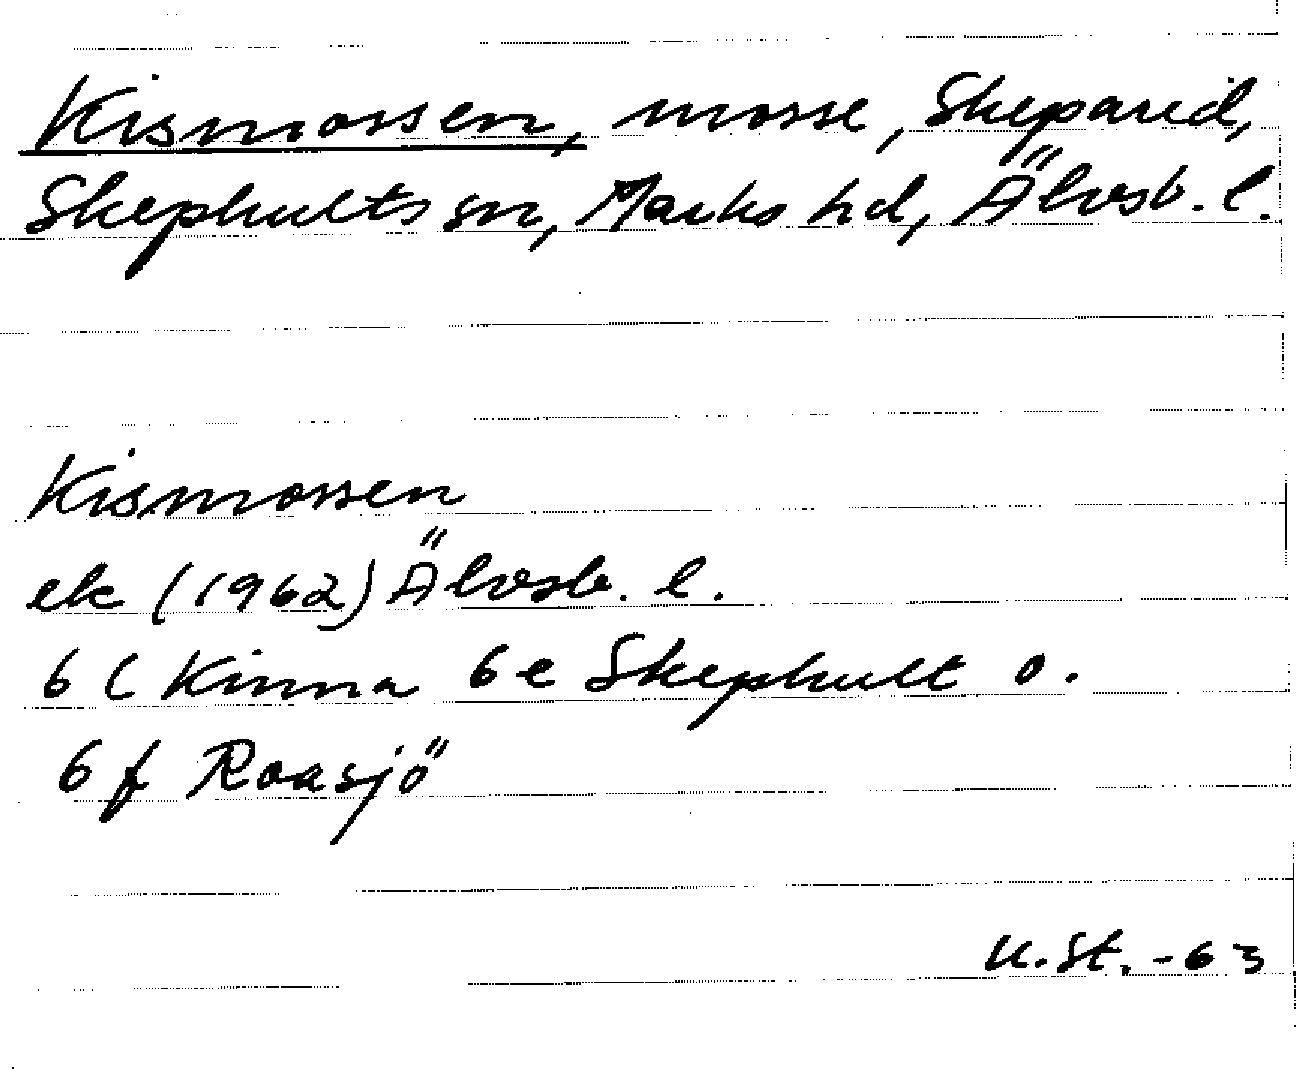 Kismossen, mosse, Skepared,
Skephults sn, Marks hd, Älvsb. l.
Kismossen
ek (1962) Älvsb. l.
6 C Kinna 6 e Skephult o.
6 f Roasjö
U.St. -63